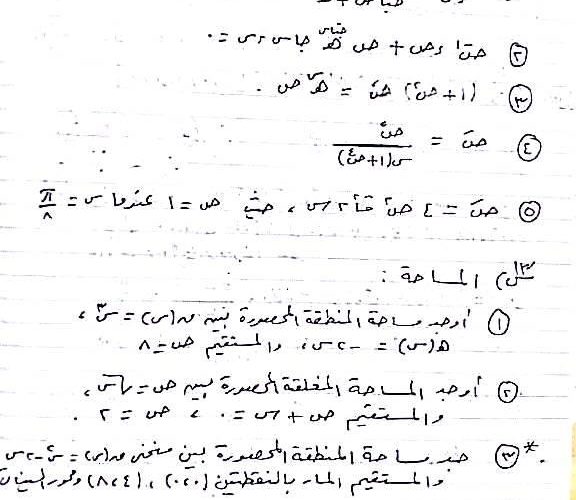 ② ص^{-١} دص + ص هـ^{جتاس} جاس دس = ٠
③ (١ + ص^٢) صَ = هـ^س ص .
④ صَ = ص^٢ / س(١ + ص^٤)
⑤ صَ = ٤ ص^٢ قتا ٢س ، حيث ص = ١ عندما س = π/٨
س٣) المساحة :
① أوجد مساحة المنطقة المحصورة بين ق(س) = س^٣ ،
هـ(س) = -٢س ، والمستقيم ص = ٨
② أوجد المساحة المغلقة المحصورة بين ص = √س ،
والمستقيم ص + س = ٠ ، ص = ٢ .
*③ جد مساحة المنطقة المحصورة بين منحنى ق(س) = س^٢ - ٢س
والمستقيم المار بالنقطتين (٠،٠) ، (٨،٤) ومحور السينات